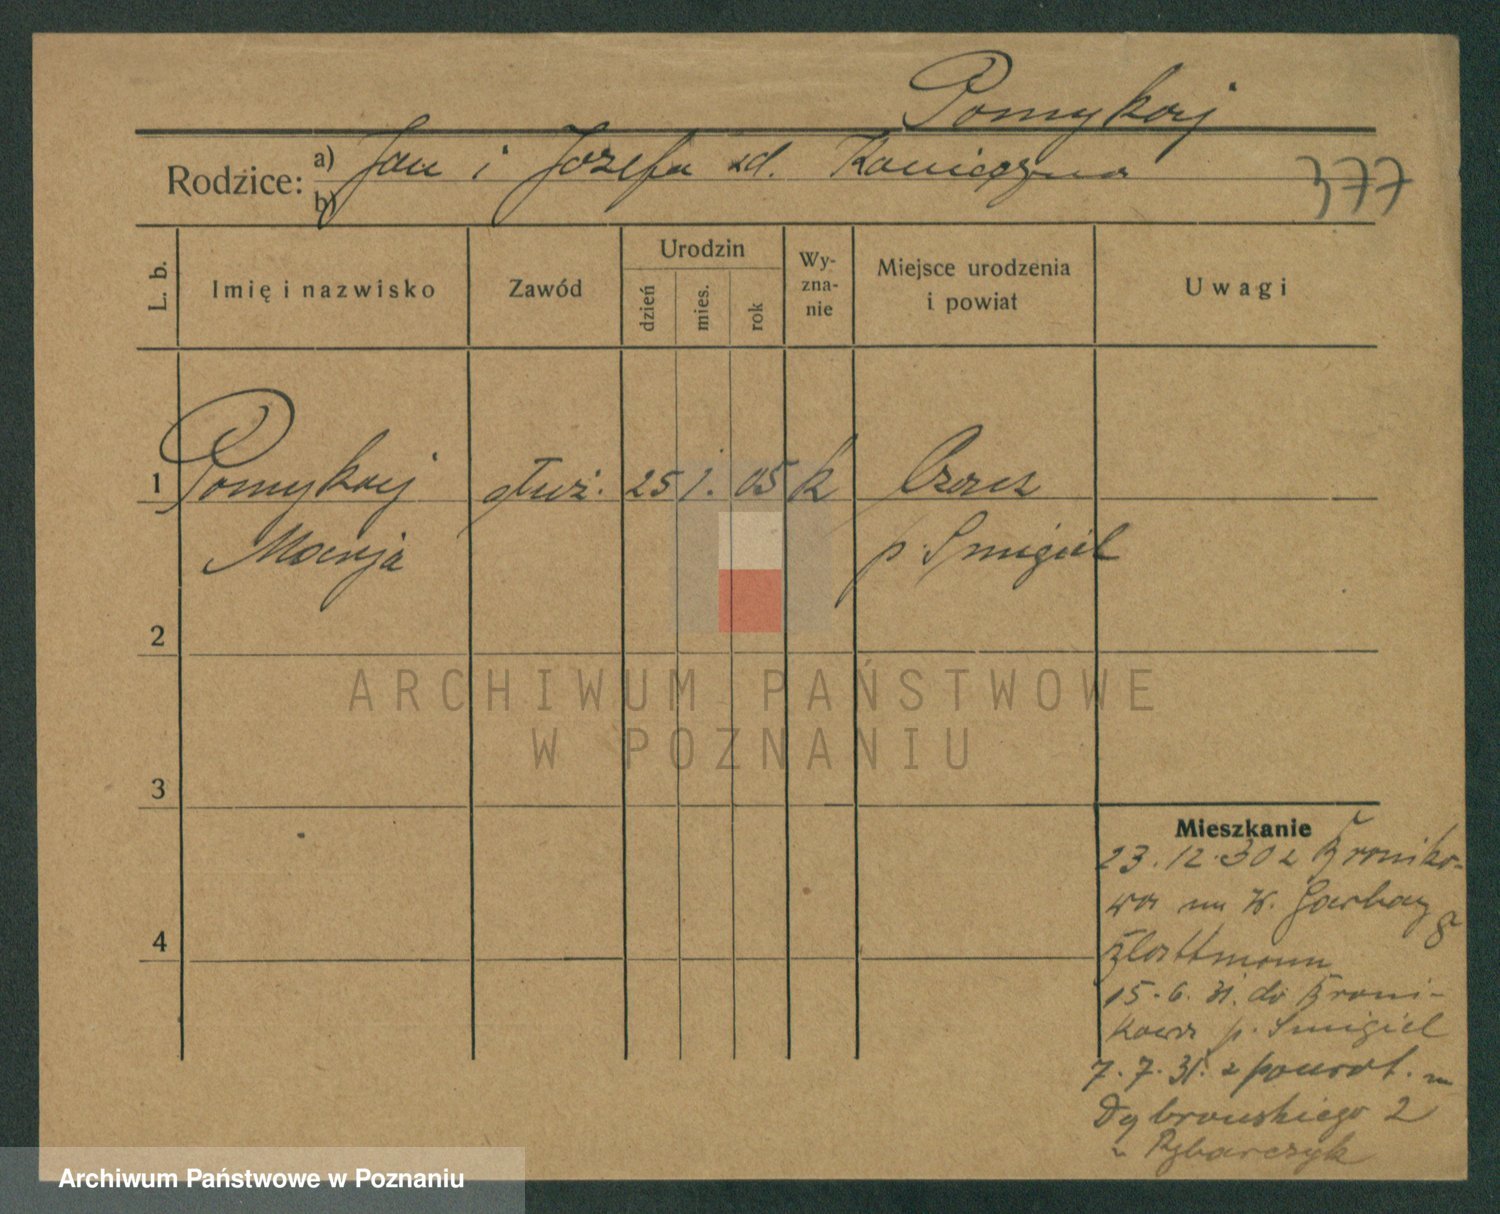 Pomykaj
Rodzice: a) Jan i Józefa zd. Konieczna
b)
377
L. b.
Imię i nazwisko
Zawód
Urodzin
dzień
mies.
rok
Wy-
zna-
nie
Miejsce urodzenia
i powiat
Uwagi
1 Pomykaj służ. 25 1. 05 k Czacz
Maryja p. Śmigiel
2
ARCHIWUM PAŃSTWOWE
W POZNANIU
3
Mieszkanie
23.12.30 z Broniko-
wa na W. Garbary 8
15.6.31. do Broni-
kowa p. Śmigiel
7.7.31. z powrot. na
Dąbrowskiego 2
u Rybarczyk
4
Archiwum Państwowe w Poznaniu